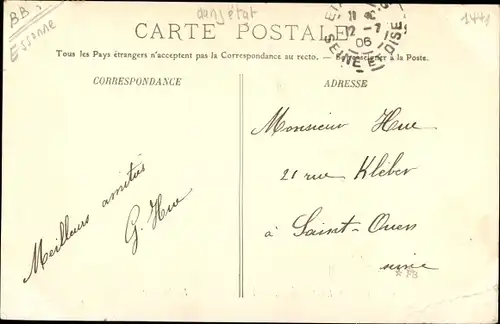 BB
Essonne
dans état
1441
CARTE POSTALE
12-7
06
SEINE-ET-OISE
Tous les Pays étrangers n'acceptent pas la Correspondance au recto. — Se renseigner à la Poste.
CORRESPONDANCE
ADRESSE
Meilleurs amitiés
G. Hue
Monsieur Hue
21 rue Kléber
à Saint-Ouen
seine